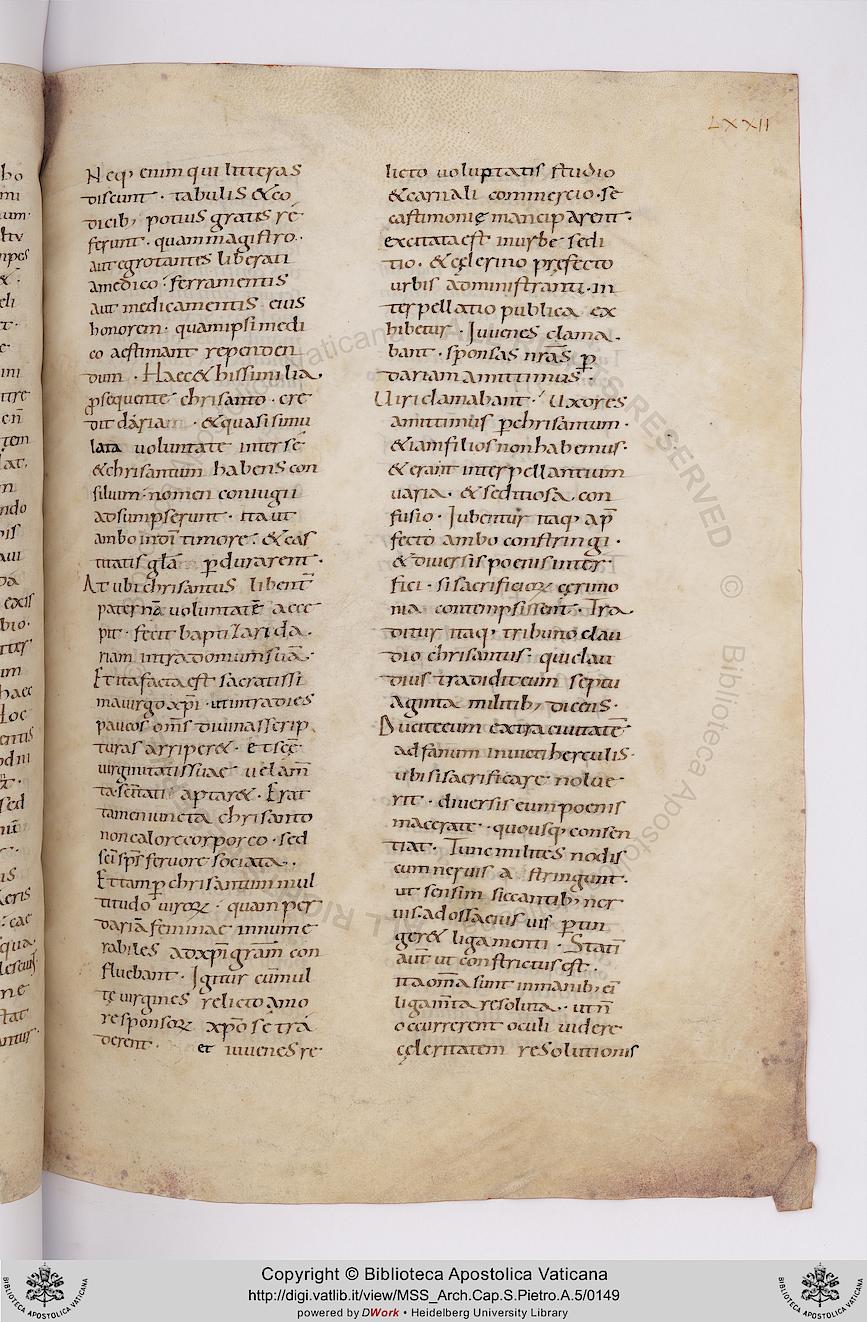 LXXII
Neq; enim qui litteras
discunt · tabulis & co
dicib; potius grates re
ferunt · quam magistro ·
aut egrotantes liberati
a medico · ferramentis
aut medicamentis eius
honorem · quam ipsi medi
co aestimant rependen
dum · Haec & his similia ·
ꝓsequente chrisanto · cre
dit dariam · & quasi simu
lata voluntate inter se
& chrisantum habens con
silium · nomen coniugii
adsumpserunt · ita ut
ambo in dī timore · & cas
titatis glā ꝑdurarent ·
At ubi chrisantus libent̄
paternā voluntatē acce
pit · fecit baptizari da
riam intra domum suā ·
Et ita facta est sacratissi
ma virgo xp̄i · ut intra dies
paucos om̄s divinas scrip
turas arriper& · et sc̄ę
virginitatis suae velam̄
aptar& · Erat
tamen iuncta chrisanto
non calore corporeo · sed
sc̄i sps̄ fervore sociata ·
Et tam ꝑ chrisantum mul
titudo viroꝝ · quam per
dariā feminae innume
rabiles ad xp̄i gram̄ con
fluebant · Igitur cū mul
tę virgines relicto amo
re sponsoꝝ xp̄o se tra
derent · et iuvenes re
licto voluptatis studio
& carnali commercio · se
castimonię manciparent ·
excitata est in urbe sedi
tio · & cęlerino pręfecto
urbis administranti · in
terpellatio publica ex
hibetur · Iuvenes clama
bant · sponsas nrās ꝑ
dariam amittimus ·
Viri clamabant · Uxores
amittimus ꝑ chrisantum ·
& iam filios non habemus ·
& erant interpellantium
varia · & seditiosa con
fusio · Iubentur itaq; a p̄
fecto ambo constringi ·
& diversis poenis inter
fici · si sacrificioꝝ cęrimo
nia contempsissent · Tra
ditur itaq; tribuno clau
dio chrisantus · qui clau
dius tradidit eum septu
aginta militib; dicens ·
Ducite eum extra civitatē
ad fanum invicti herculis ·
ubi si sacrificare nolue
rit · diversis eum poenis
macerate · quousq; consen
tiat · Tunc milites nodis
eum nervis astringunt ·
ut sensim siccantib; ner
vis · ad ossa eius vis ꝑtin
ger& ligamenti · Statī
aut̄ ut constrictus est ·
ita om̄a sunt in manib; eī
ligam̄ta resoluta · ut n̄
occurrerent oculi videre
cęleritatem resolutionis
Copyright © Biblioteca Apostolica Vaticana
http://digi.vatlib.it/view/MSS_Arch.Cap.S.Pietro.A.5/0149
powered by DWork • Heidelberg University Library